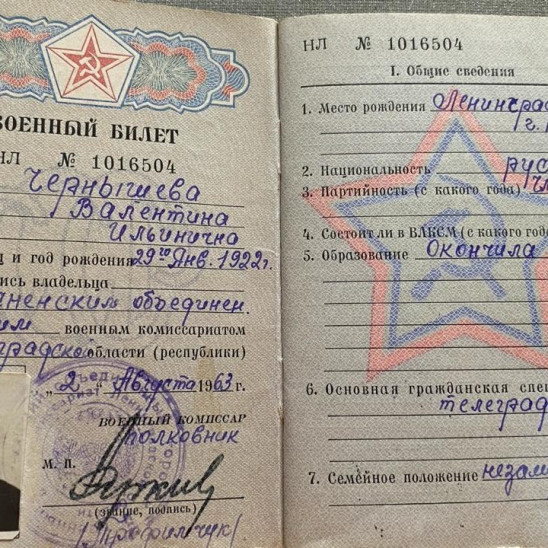 ВОЕННЫЙ БИЛЕТ
НЛ № 1016504
Чернышева
Валентина
Ильинична
и год рождения 29го Янв. 1922г.
пись владельца
ненским объединен.
им военным комиссариатом
градской области (республики)
"2" Августа 1963 г.
ВОЕННЫЙ КОМИССАР
полковник
М. П.
(звание, подпись)
НЛ № 1016504
I. Общие сведения
1. Место рождения Ленинград
г.
2. Национальность рус
3. Партийность (с какого года) чл
4. Состоит ли в ВЛКСМ (с какого года
5. Образование Окончила
6. Основная гражданская спе
телеграф
7. Семейное положение незам